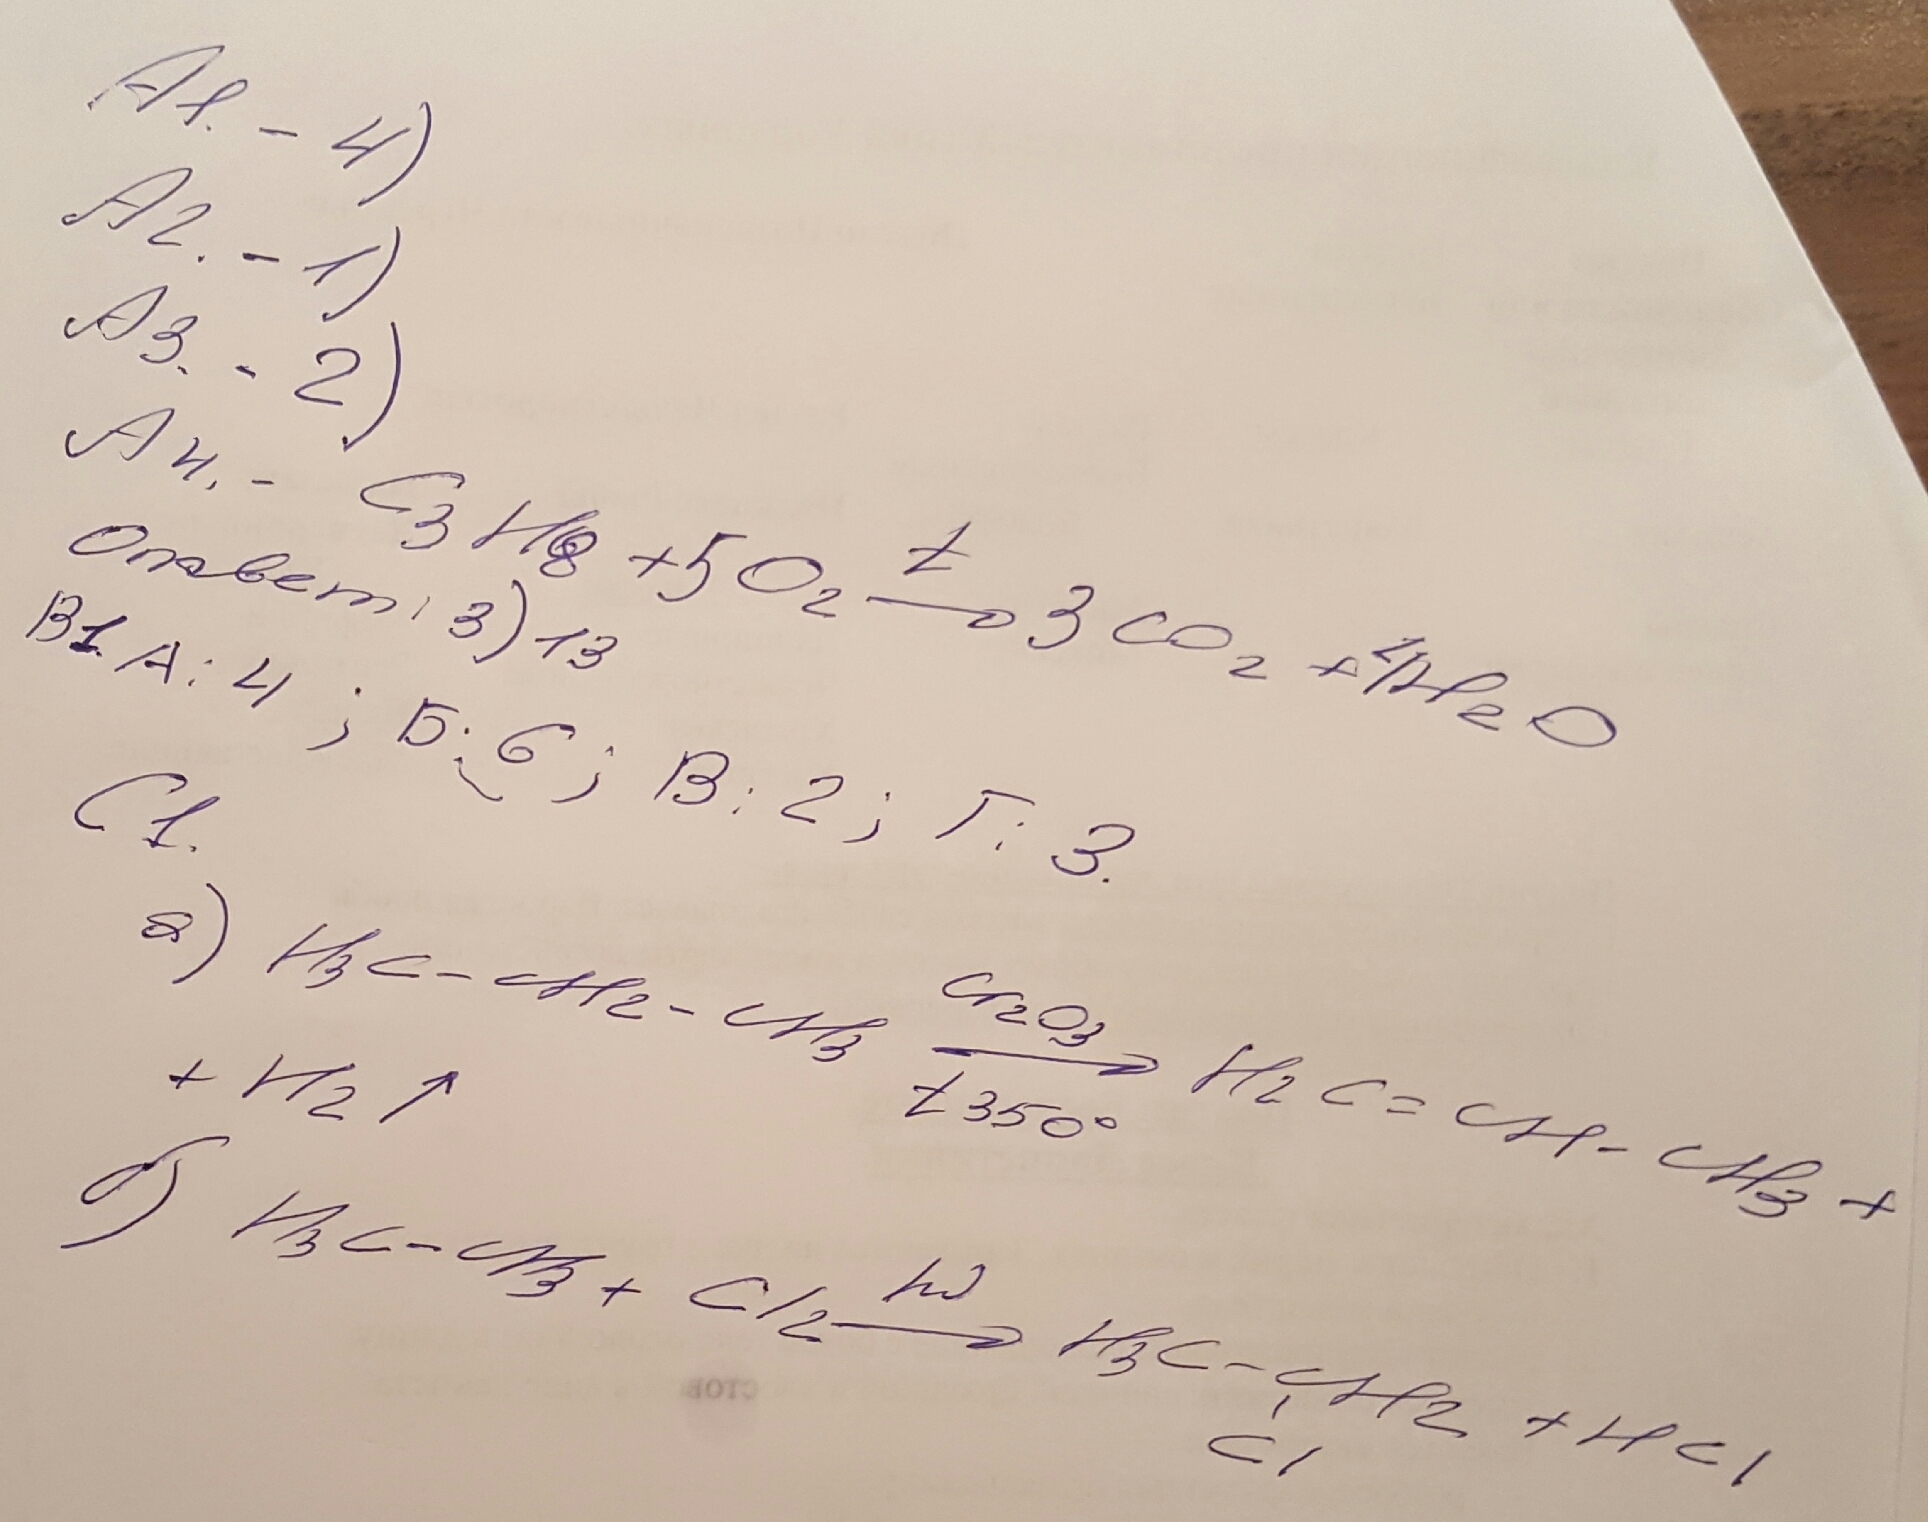 А1. - 4)
А2. - 1)
А3. - 2)
А4. - C3H8 + 5O2 →t 3CO2 + 4H2O
Ответ: 3) 13
В1. А: 4; Б: 6; В: 2; Г: 3.
С1.
а) H3C-CH2-CH3 →Cr2O3 t 350° H2C=CH-CH3 +
+ H2↑
б) H3C-CH3 + Cl2 →hν H3C-CH2 + HCl
Cl